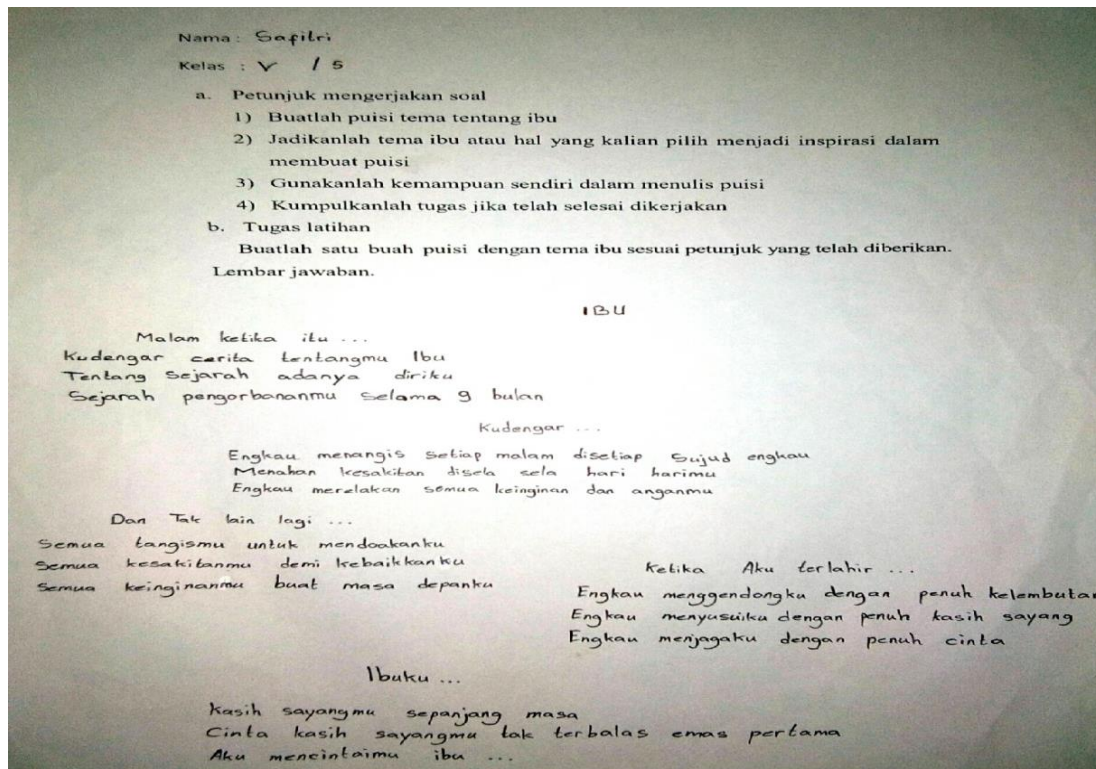 Nama : Safitri
Kelas : V / 5
a. Petunjuk mengerjakan soal
1) Buatlah puisi tema tentang ibu
2) Jadikanlah tema ibu atau hal yang kalian pilih menjadi inspirasi dalam
membuat puisi
3) Gunakanlah kemampuan sendiri dalam menulis puisi
4) Kumpulkanlah tugas jika telah selesai dikerjakan
b. Tugas latihan
Buatlah satu buah puisi dengan tema ibu sesuai petunjuk yang telah diberikan.
Lembar jawaban.
IBU
Malam ketika itu ...
Kudengar cerita tentangmu Ibu
Tentang Sejarah adanya diriku
Sejarah pengorbananmu selama 9 bulan
Kudengar ...
Engkau menangis setiap malam disetiap Sujud engkau
Menahan kesakitan disela sela hari harimu
Engkau merelakan semua keinginan dan anganmu
Dan Tak lain lagi ...
Semua tangismu untuk mendoakanku
Semua kesakitanmu demi kebaikkanku
Semua keinginanmu buat masa depanku
Ketika Aku terlahir ...
Engkau menggendongku dengan penuh kelembutan
Engkau menyusuiku dengan penuh kasih sayang
Engkau menjagaku dengan penuh cinta
Ibuku ...
Kasih sayangmu sepanjang masa
Cinta kasih sayangmu tak terbalas emas pertama
Aku mencintaimu ibu ...